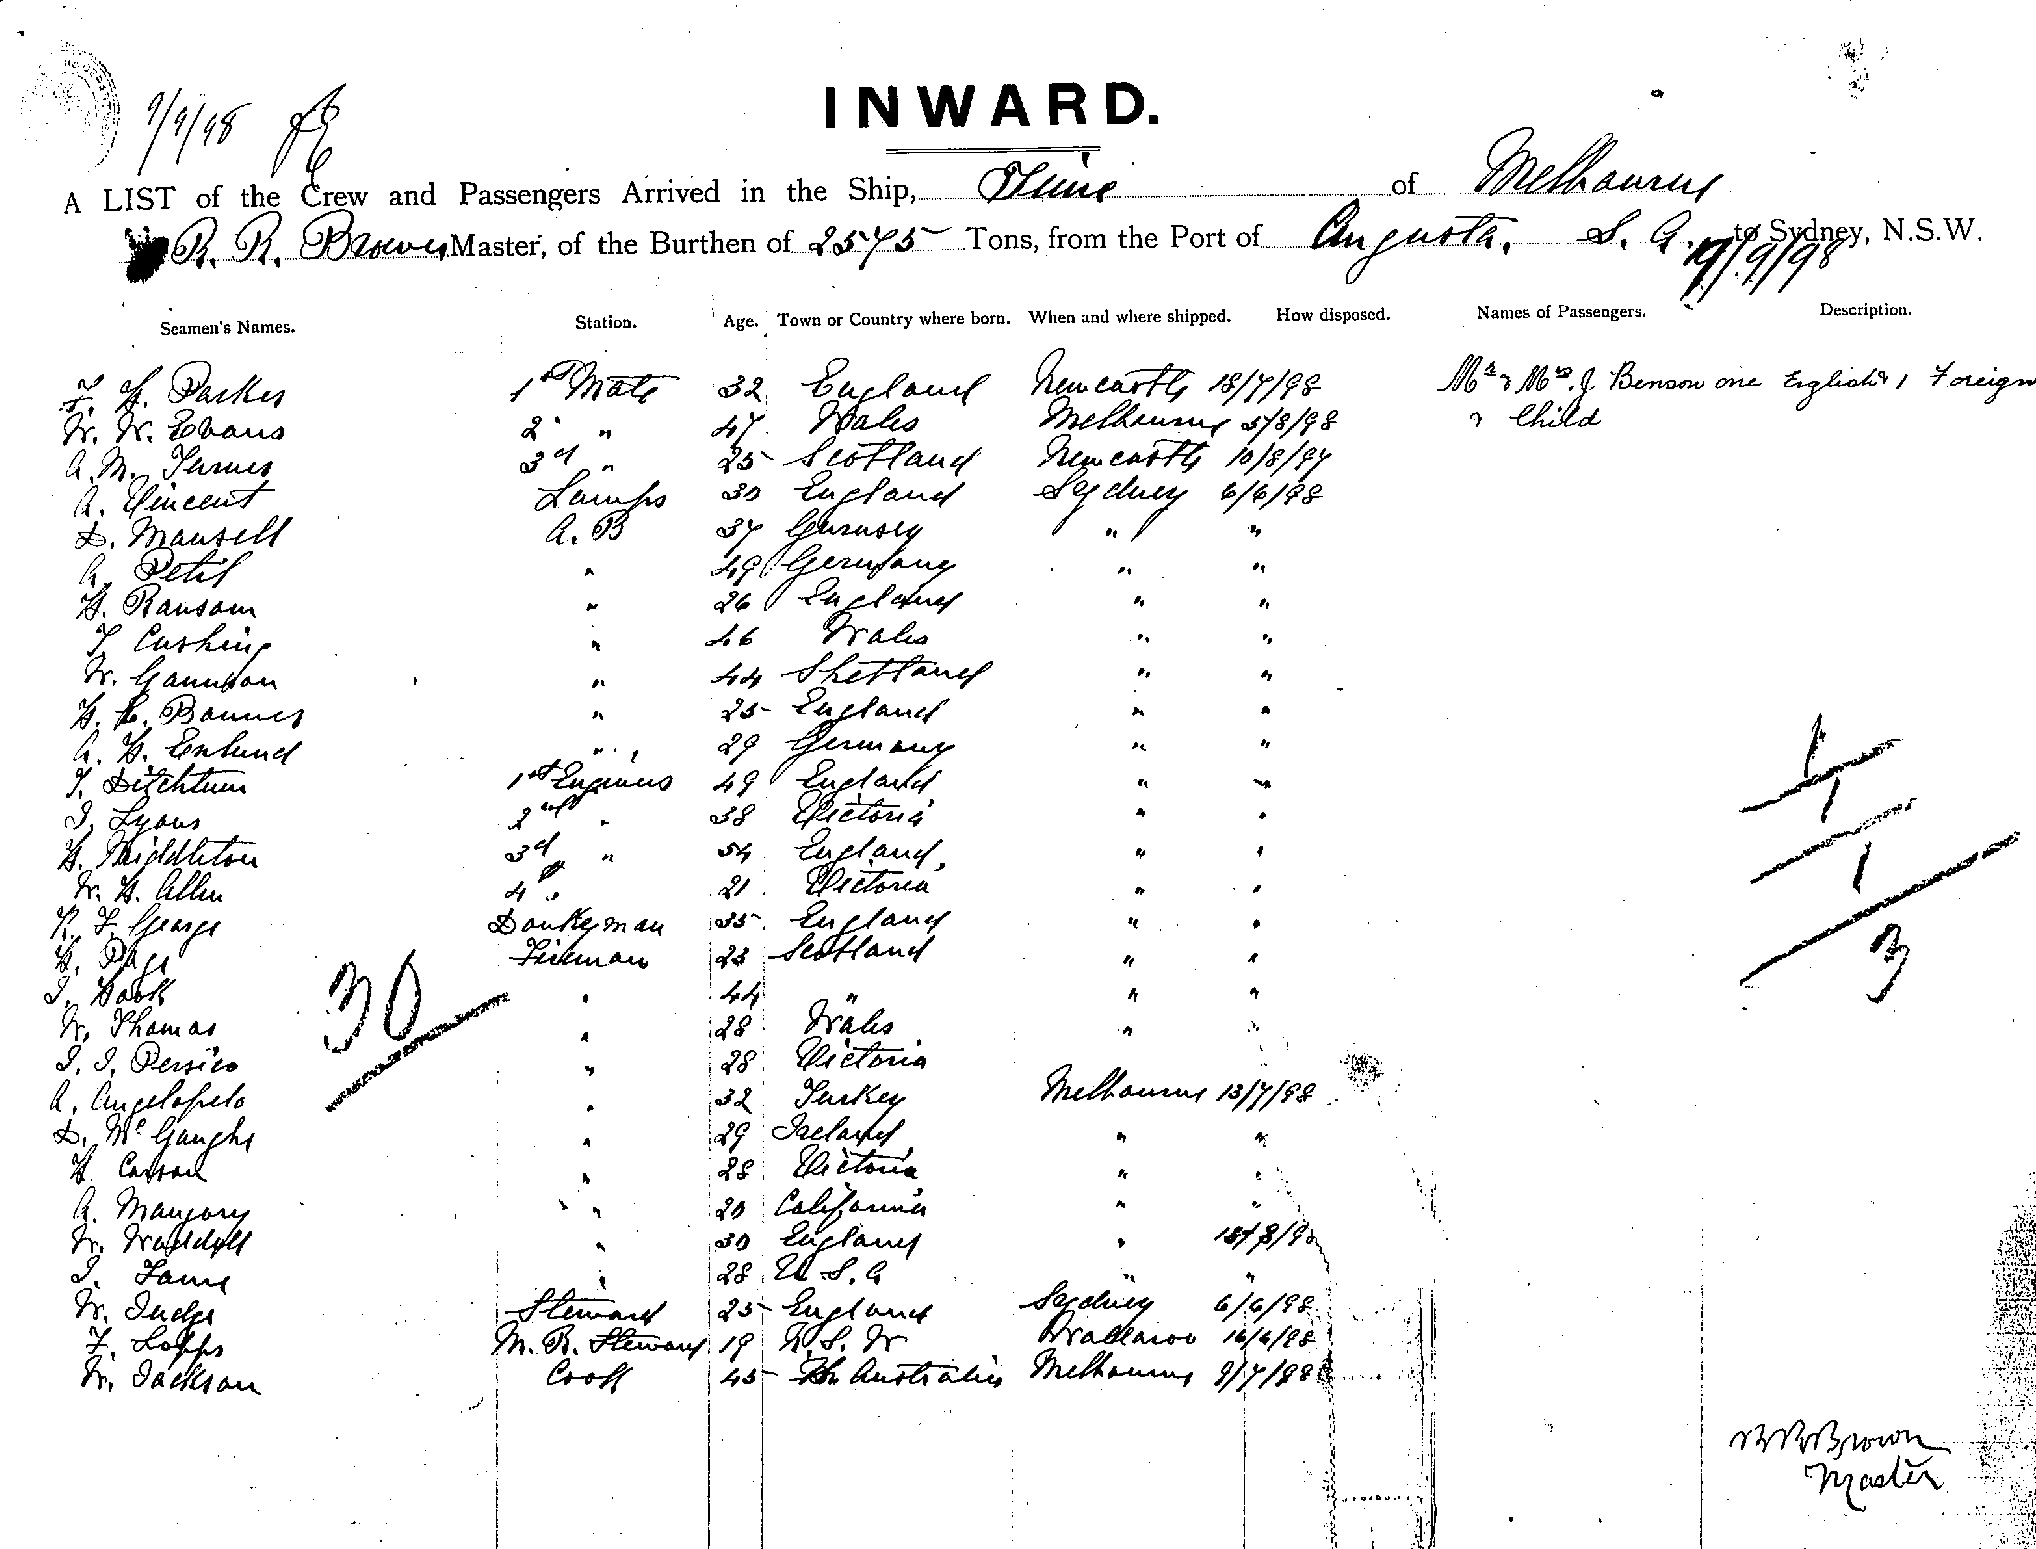 9/9/98
INWARD.
A LIST of the Crew and Passengers Arrived in the Ship, of Melbourne
R. R. Brown Master, of the Burthen of 2575 Tons, from the Port of Augusta, S. A. to Sydney, N.S.W.
19/9/98
Seamen's Names. Station. Age. Town or Country where born. When and where shipped. How disposed. Names of Passengers. Description.
F. H. Parker 1st Mate 32 England Newcastle 18/7/98 Mr & Mrs. J. Benson one English & 1 Foreign
W. W. Evans 2 " 47 Wales Melbourne 5/8/98 & Child
A. M. Turner 3d " 25 Scotland Newcastle 10/8/97
A. Vincent Lamps 30 England Sydney 6/6/98
D. Mansell A. B 37 Guernsey " "
A. Petit " 49 Germany " "
H. Ransom " 26 England " "
T. Cushing " 46 Wales " "
W. " 44 Shetland " "
H. E. Banner " 25 England " "
A. H. Enlund " 29 Germany " "
T. Ditchburn 1st Engineer 49 England " "
J. Lyons 2nd " 38 Victoria " "
H. Middleton 3d " 54 England, " "
W. H. Allen 4 " 21 Victoria " "
R. F. George Donkeyman 35 England " "
H. Page Fireman 23 Scotland " "
J. " 44 " " "
W. Thomas " 28 Wales " "
J. J. Persico " 28 Victoria
A. Angelopelo " 32 Turkey Melbourne 13/7/98
D. " 29 Ireland " "
H. Carson " 28 Victoria " "
A. " 20 California " "
W. Waddell " 30 England "
J. " 28 U. S. A " "
W. Judge Steward 25 England Sydney 6/6/98
F. M. R. Steward 19 N. S. W Wallaroo 16/6/98
W. Jackson Cook 45 Australia Melbourne 9/7/98
30
1
1
1
3
R R Brown
Master